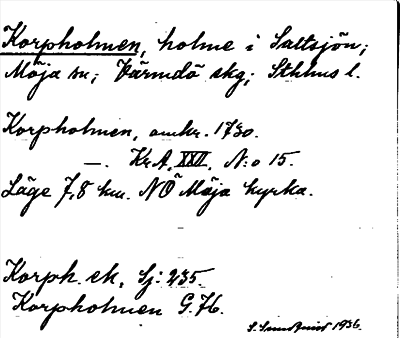 Korpholmen, holme i Saltsjön;
Möja sn; Värmdö skg; Sthlms l.
Korpholmen, omkr. 1730.
—. Kr.A. XXII. N:o 15.
Läge 7,8 km. NÖ Möja kyrka.
Korph. ek, Sj: 235.
Korpholmen G.76.
1936